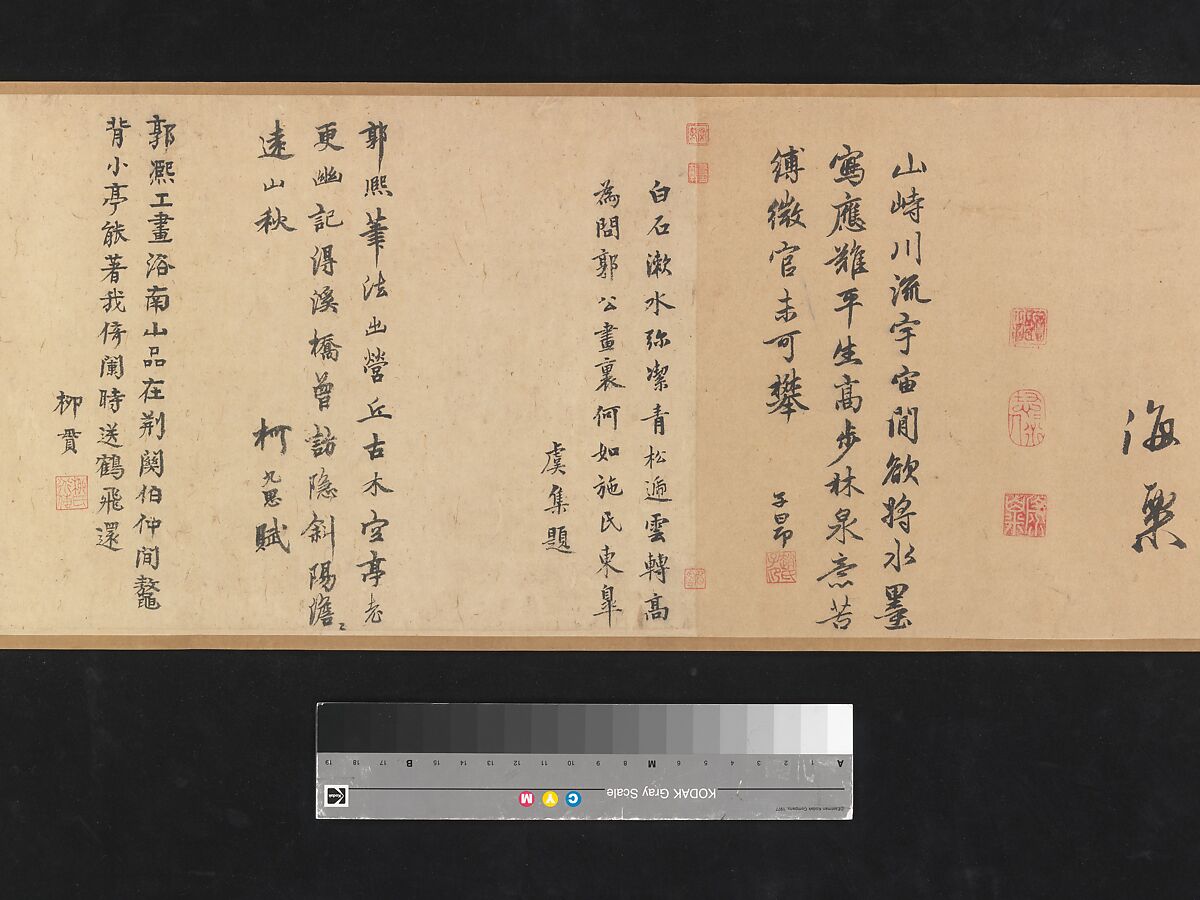 海粟
山峙川流宇宙閒欲將水墨
寫應難平生高步林泉意苦
縛微官未可攀
子昂
白石漱水弥潔青松雲轉高
為問郭公畫裏何如施氏東皐
虞集題
郭熙筆法出營丘古木空亭老
更幽記得溪橋曾訪隐斜陽澹〻
遠山秋
柯九思賦
郭熙工畫浴南山品在荆關伯仲間鼇
背小亭能著我倚闌時送鶴飛還
柳貫
KODAK Gray Scale
C Y M
A 1 2 3 4 5 6 M 8 9 10 11 12 13 14 15 B 17 18 19
©Eastman Kodak Company, 1977
Kodak